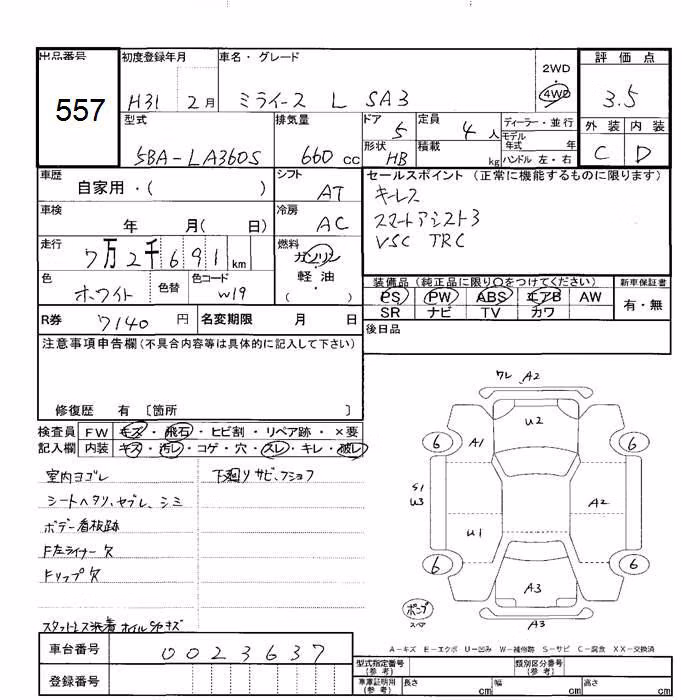 出品番号 557
初度登録年月 H31 2月
車名・グレード ミライース L SA3
2WD
4WD
評価点 3.5
外装 内装
C D
型式 5BA-LA360S
排気量 660 cc
ドア 5
定員 4人
形状 HB
積載 kg
ディーラー・並行
モデル年式 年式
ハンドル 左・右
車歴 自家用・( )
シフト AT
車検 年 月( 日)
冷房 AC
走行 7万2千691km
燃料 ガソリン
軽・油
( )
色 ホワイト 色替
色コード W19
セールスポイント(正常に機能するものに限ります)
キーレス
スマートアシスト3
VSC TRC
装備品(純正品に限り〇をつけてください)
PS PW ABS エアB AW
SR ナビ TV カワ
新車保証書
有・無
R券 7140 円 名変期限 月 日
後日品
注意事項申告欄(不具合内容等は具体的に記入して下さい)
修復歴 有 [箇所 ]
検査員 FW キズ・飛石・ヒビ割・リペア跡・×要
記入欄 内装 キズ・汚レ・コゲ・穴・スレ・キレ・破レ
室内ヨゴレ 下廻りサビ、フショク
シートヘタリ、ヤブレ、シミ
ボデー看板跡
F左ライナー欠
Fリップ欠
スタットレス装着 ホイルSタキズ
ワレ A2
U2
6 A1 6
S1
U3
A2
U1
6 6
A3
ポンプ
スペア
A3
A-キズ E-エクボ U-凹み W-補修跡 S-サビ C-腐食 XX-交換済
車台番号 0023637
登録番号
型式指定番号(参考) 類別区分番号(参考)
車庫証明用(参考) 長さ cm 幅 cm 高さ cm